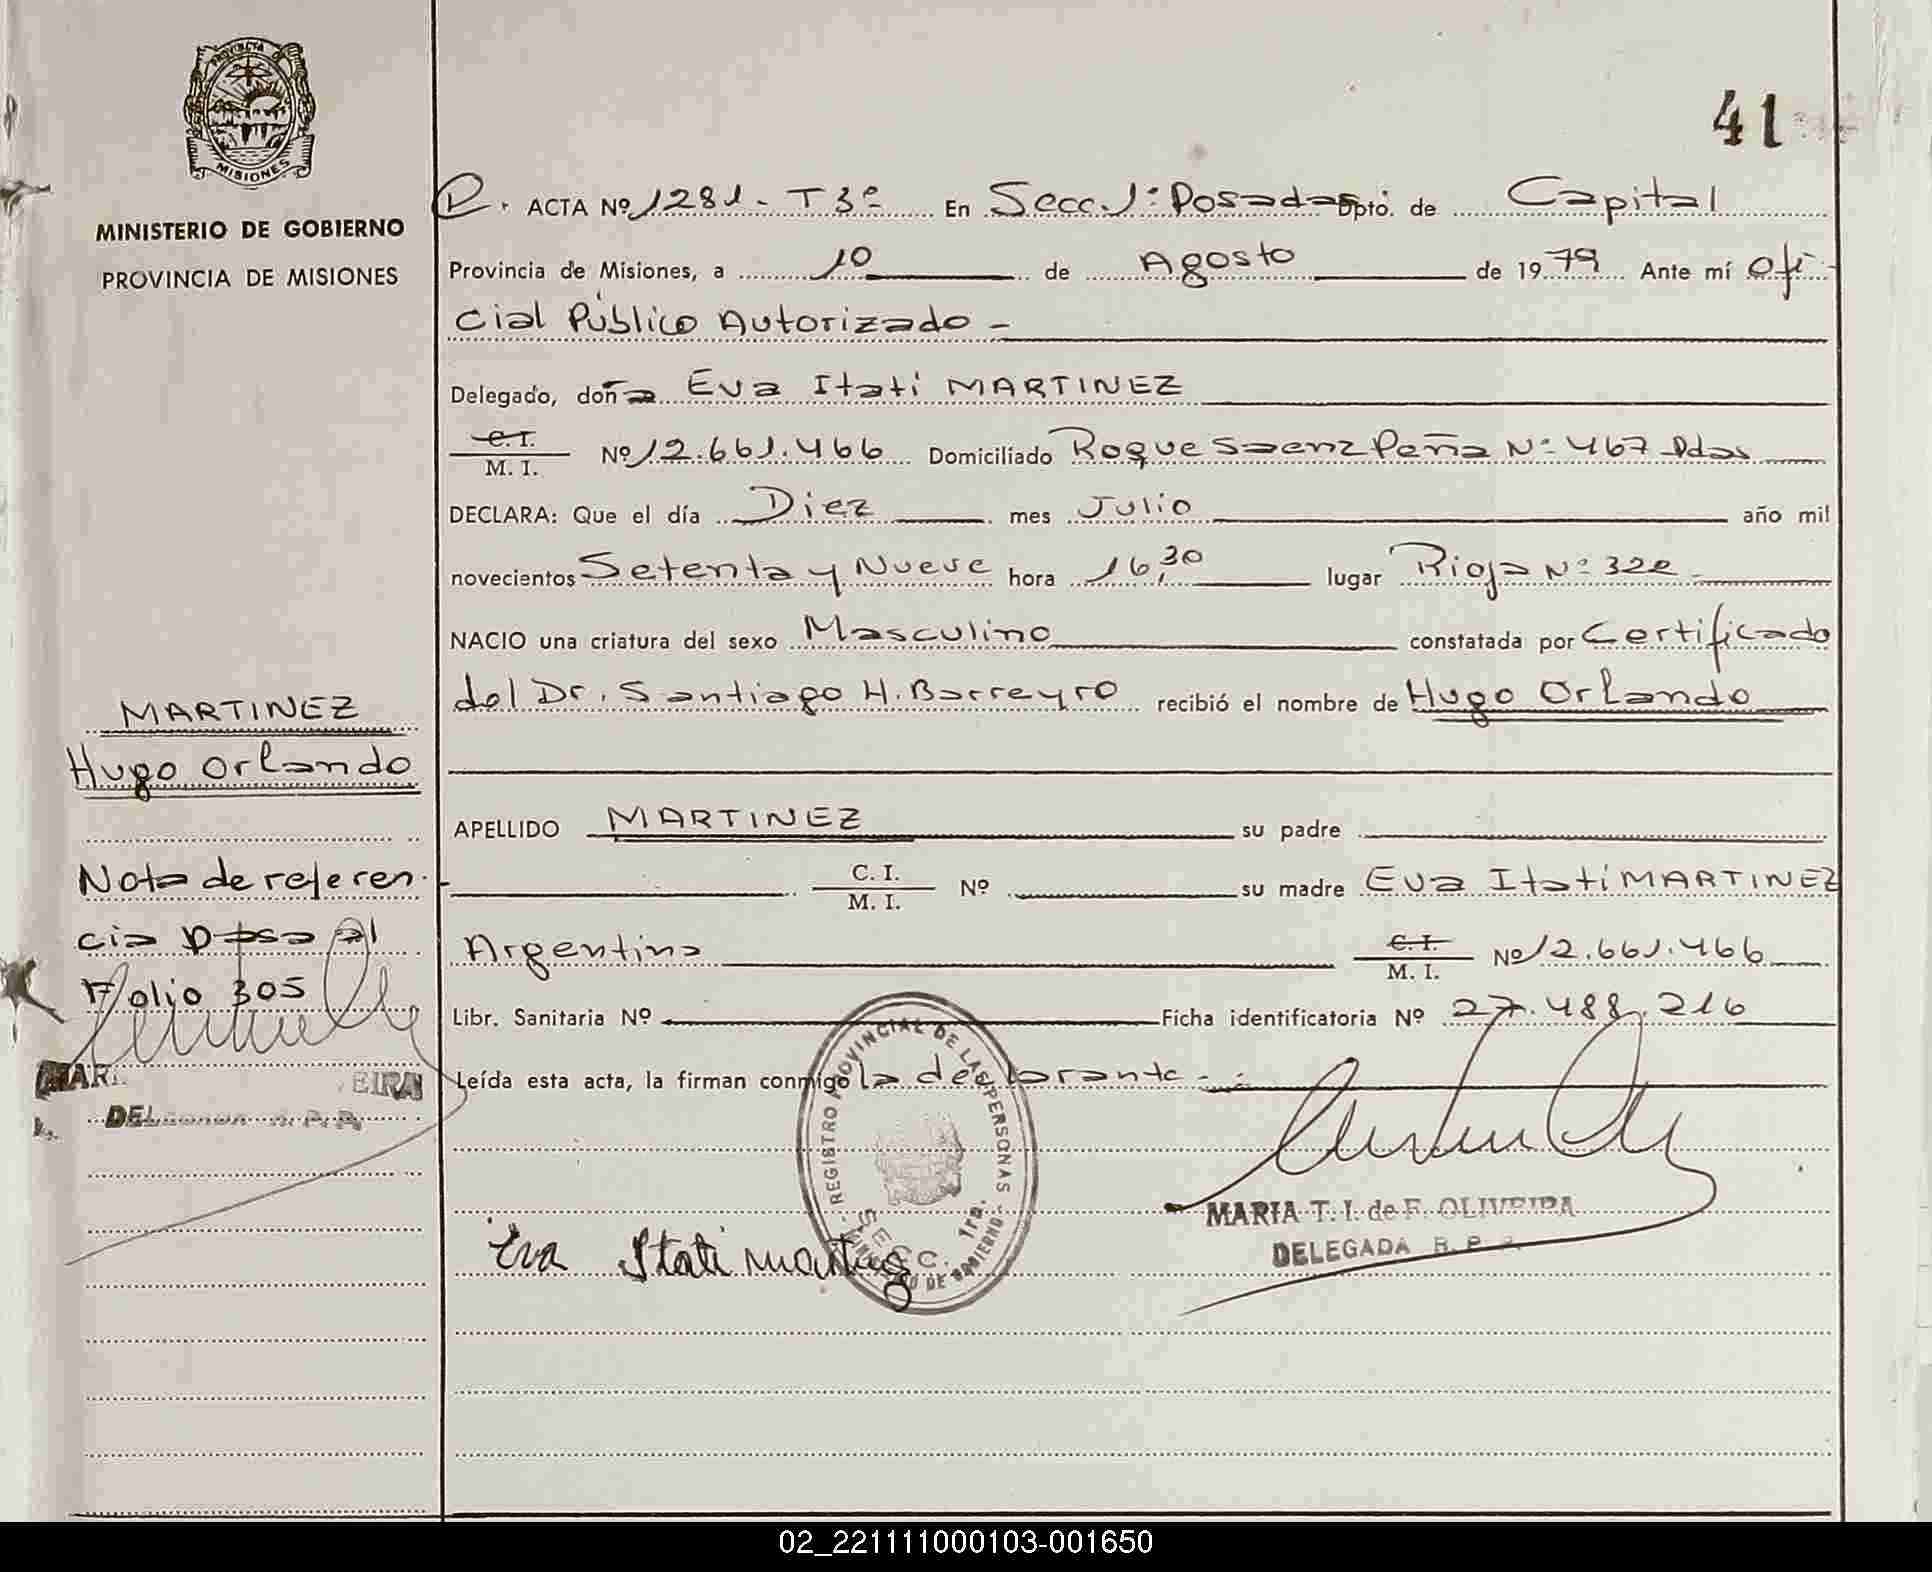 PROVINCIA DE
MISIONES
MINISTERIO DE GOBIERNO
PROVINCIA DE MISIONES
MARTINEZ
Hugo Orlando
Nota de referen
cia pasa al
Folio 305
EIRA
DELEGADA R.P.P.
41
ACTA Nº 1281 - T 3º En Secc. 1ª Posadas Dpto. de Capital
Provincia de Misiones, a 10 de Agosto de 1979 Ante mí Ofi-
cial Público Autorizado -
Delegado, doña Eva Itati MARTINEZ
C. I.
M. I. Nº 12.661.466 Domiciliado Roque Saenz Peña Nº 467 Pdas
DECLARA: Que el día Diez mes Julio año mil
novecientos Setenta y Nueve hora 16,30 lugar Rioja Nº 322
NACIO una criatura del sexo Masculino constatada por Certificado
del Dr. Santiago H. Barreyro recibió el nombre de Hugo Orlando
APELLIDO MARTINEZ su padre
C. I.
M. I. Nº su madre Eva Itati MARTINEZ
Argentina C. I.
M. I. Nº 12.661.466
Libr. Sanitaria Nº Ficha identificatoria Nº 27.488.216
Leída esta acta, la firman conmigo la declarante -
REGISTRO PROVINCIAL DE LAS PERSONAS
SECC. 1ra.
MINISTERIO DE GOBIERNO
Eva Itati Martinez
MARIA T. I. de F. OLIVEIRA
DELEGADA R. P. P.
02_221111000103-001650